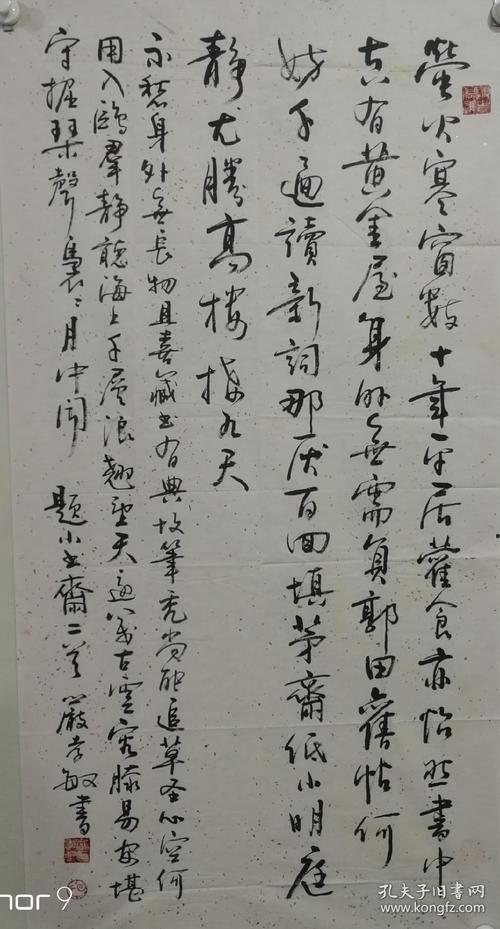 螢火寒窗數十年平居藿食亦怡然書中
有黃金屋身外無需負郭田舊帖何
妨千遍讀新詞那厭百回填茅齋低小明庭
靜尤勝高樓接九天
不愁身外無長物且喜藏書有典墳筆禿尚能追草聖心空何
用入鷗羣靜聽海上千層浪翹望天邊萬古雲容膝易安堪
守拙琴聲裊裊月中聞 題小書齋二首 嚴孝敏書
nor 9
孔夫子旧书网
www.kongfz.com